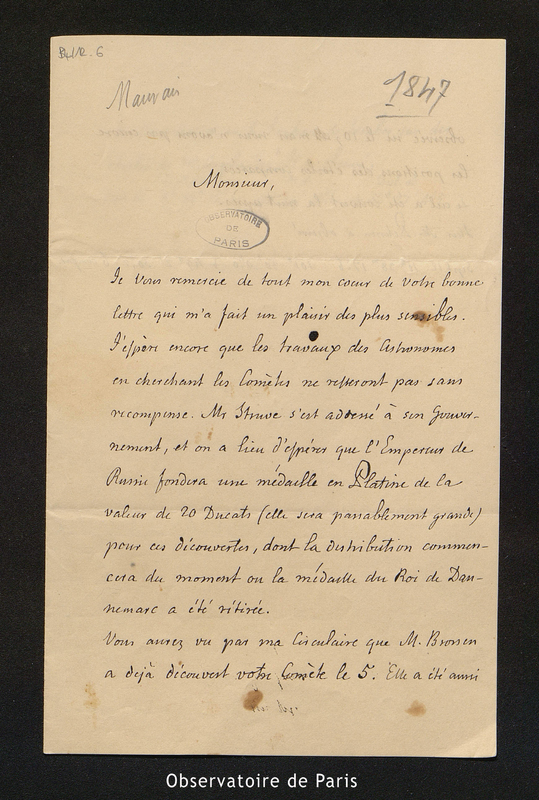 B4/12. 6
Mauvais
1847
Monsieur,
OBSERVATOIRE
DE
PARIS
Je vous remercie de tout mon coeur de votre bonne
lettre qui m'a fait un plaisir des plus sensibles.
J'espère encore que les travaux des Astronomes
en cherchant les Comètes ne resteront pas sans
recompense. Mr Struve s'est addressé à son Gouver-
nement, et on a lieu d'espérer que l'Empereur de
Russie fondera une médaille en Platine de la
valeur de 20 Ducats (elle sera passablement grande)
pour ces découvertes, dont la distribution commen-
cera du moment ou la médaille du Roi de Dan-
nemarc a été rétirée.
Vous aurez vu par ma Circulaire que M. Brorsen
a dejà découvert votre Comète le 5. Elle a été aussi
Observatoire de Paris